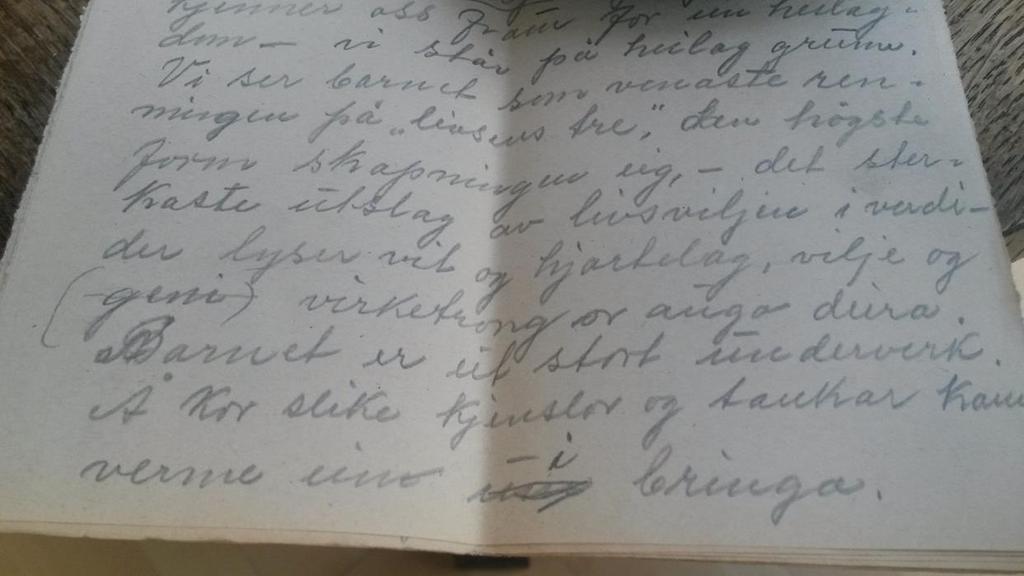 kjenner oss fram for ein heilag-
dom - vi står på heilag grunn.
Vi ser barnet som venaste ren-
ningen på „livsens tre", den högste
form skapningen eig, - det ster-
kaste utslag av livsviljen i verdi-
der lyser vit og hjartelag, vilje og
(geni) virketrong or auga deira.
Barnet er eit stort underverk.
Å kor slike kjenslor og tankar kann
verme ein - i bringa.